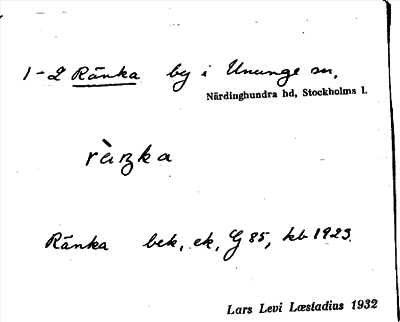 1-2 Ränka by i Ununge sn,
Närdinghundra hd, Stockholms l.
ràŋka
Ränka bek, ek, G 85, kb 1923.
Lars Levi Læstadius 1932